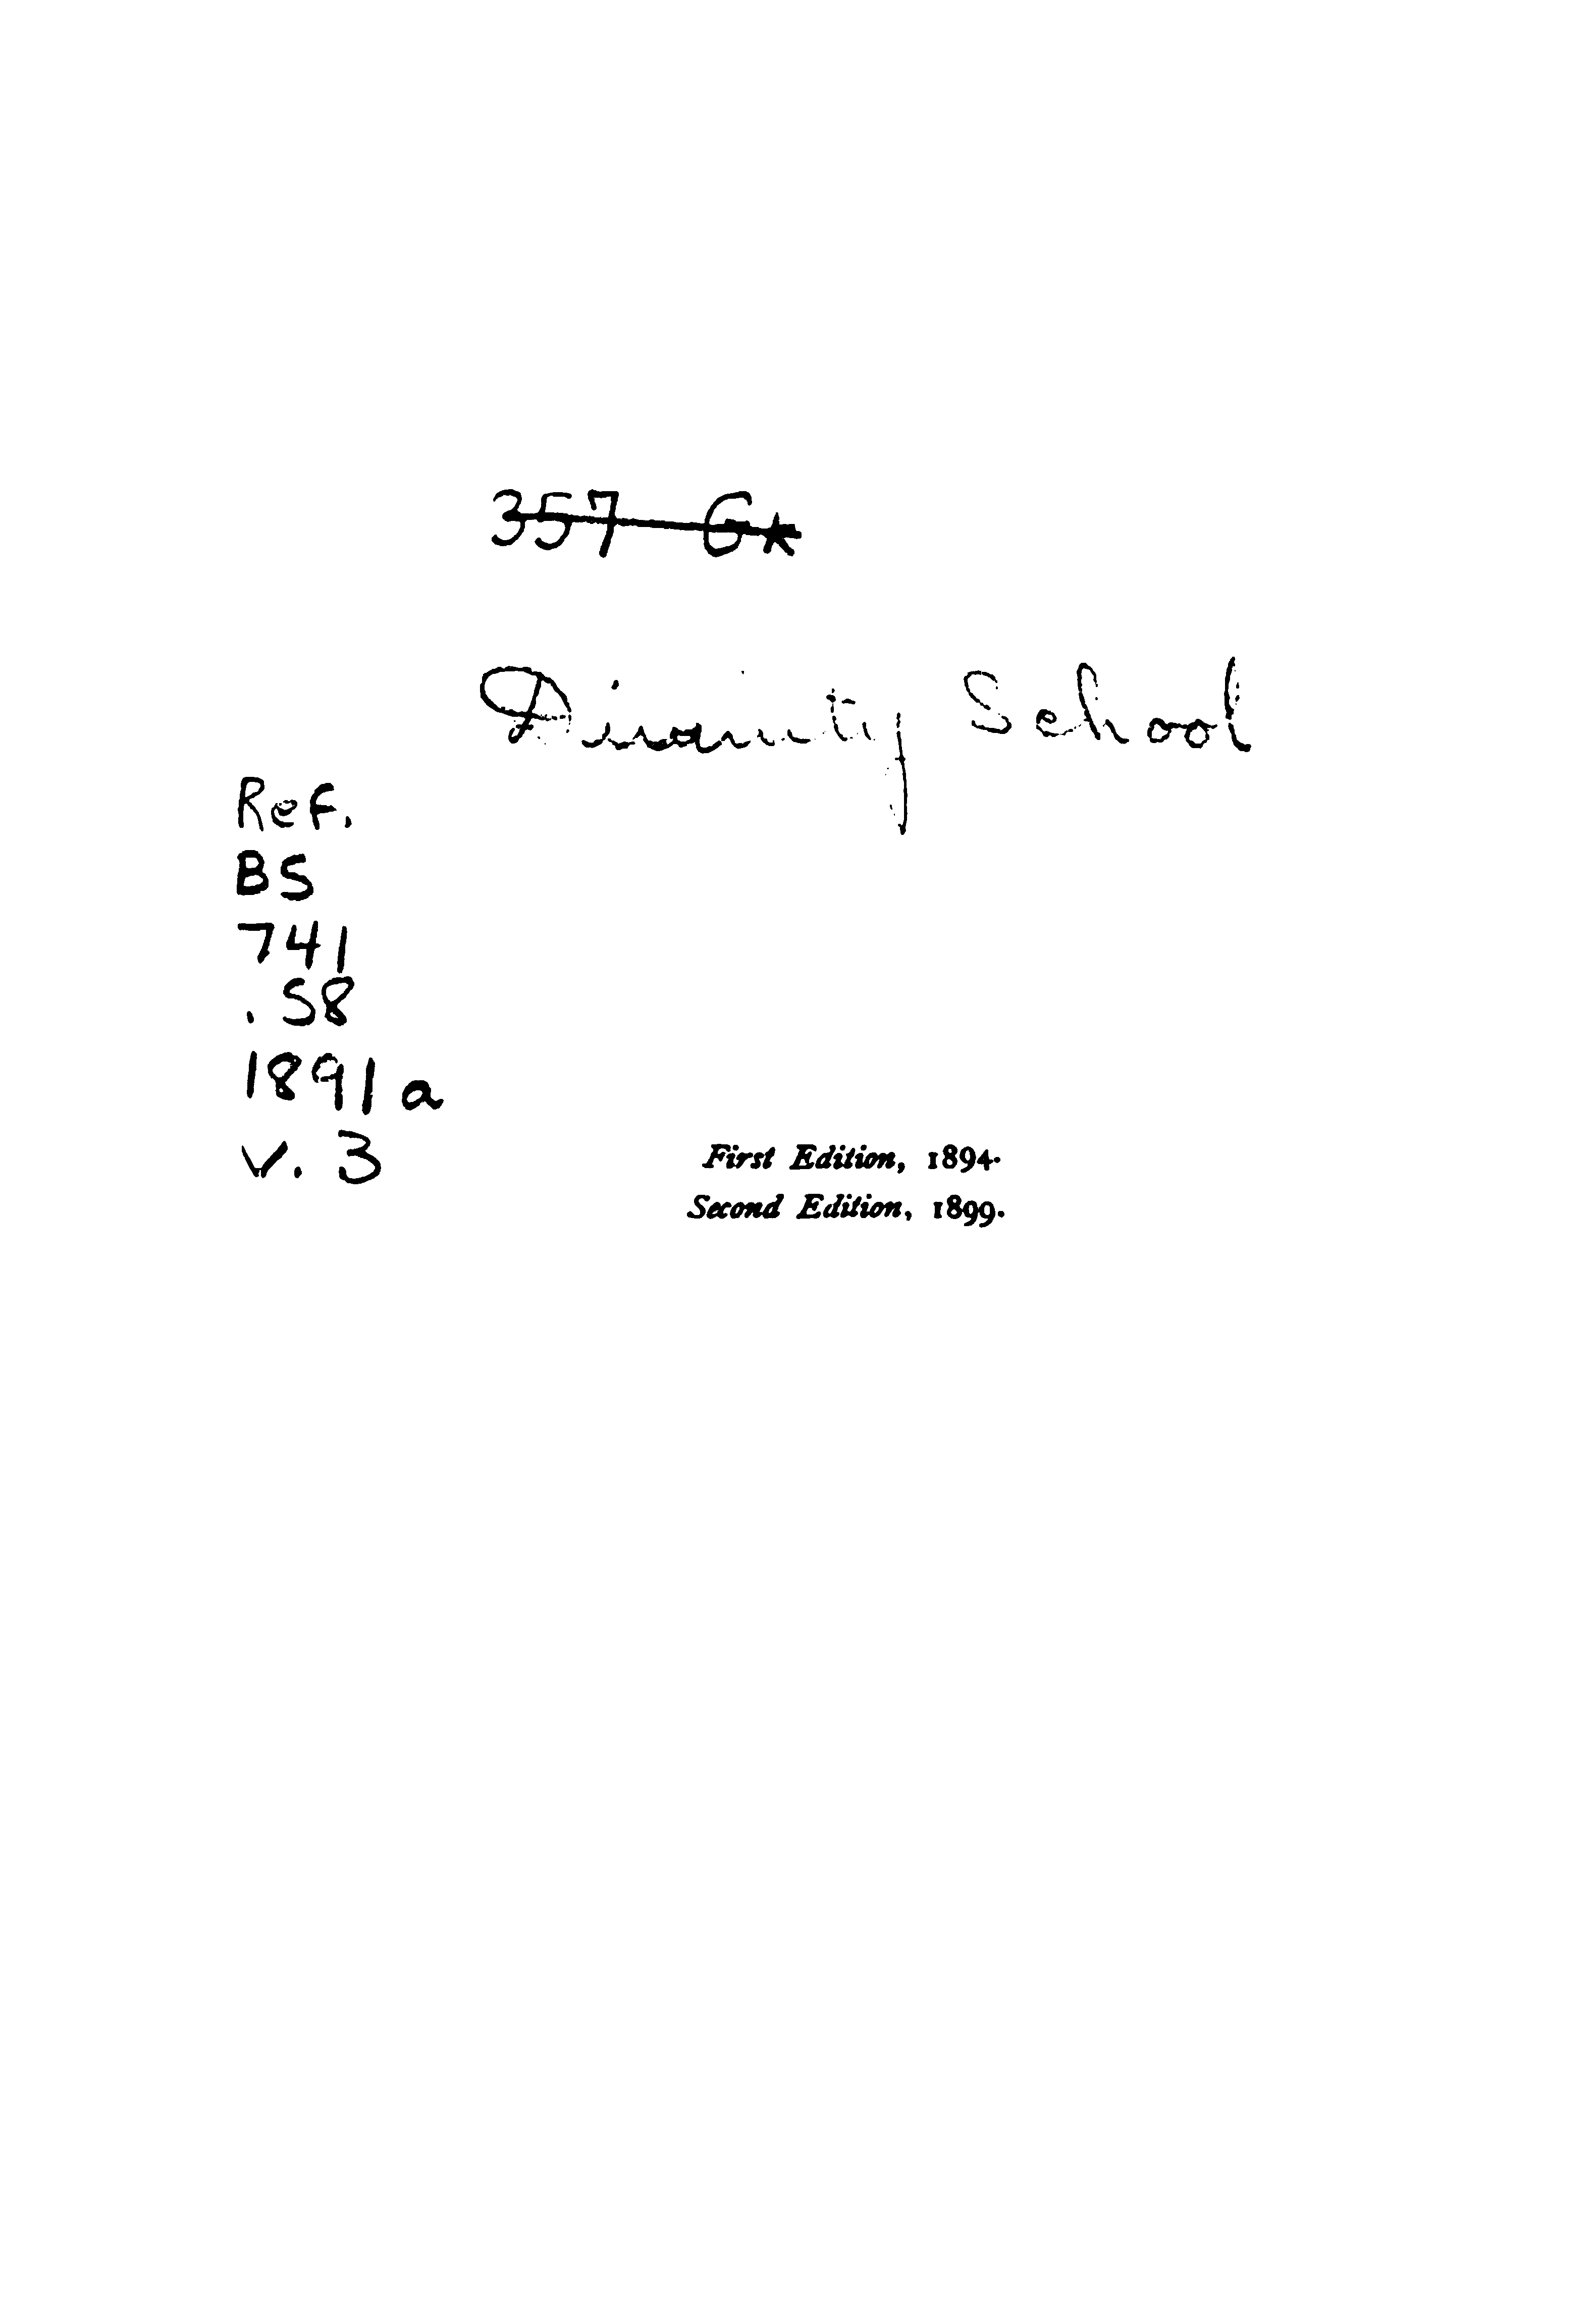 357 G*
Divinity School
Ref.
BS
741
.S8
1891a
v. 3
First Edition, 1894.
Second Edition, 1899.